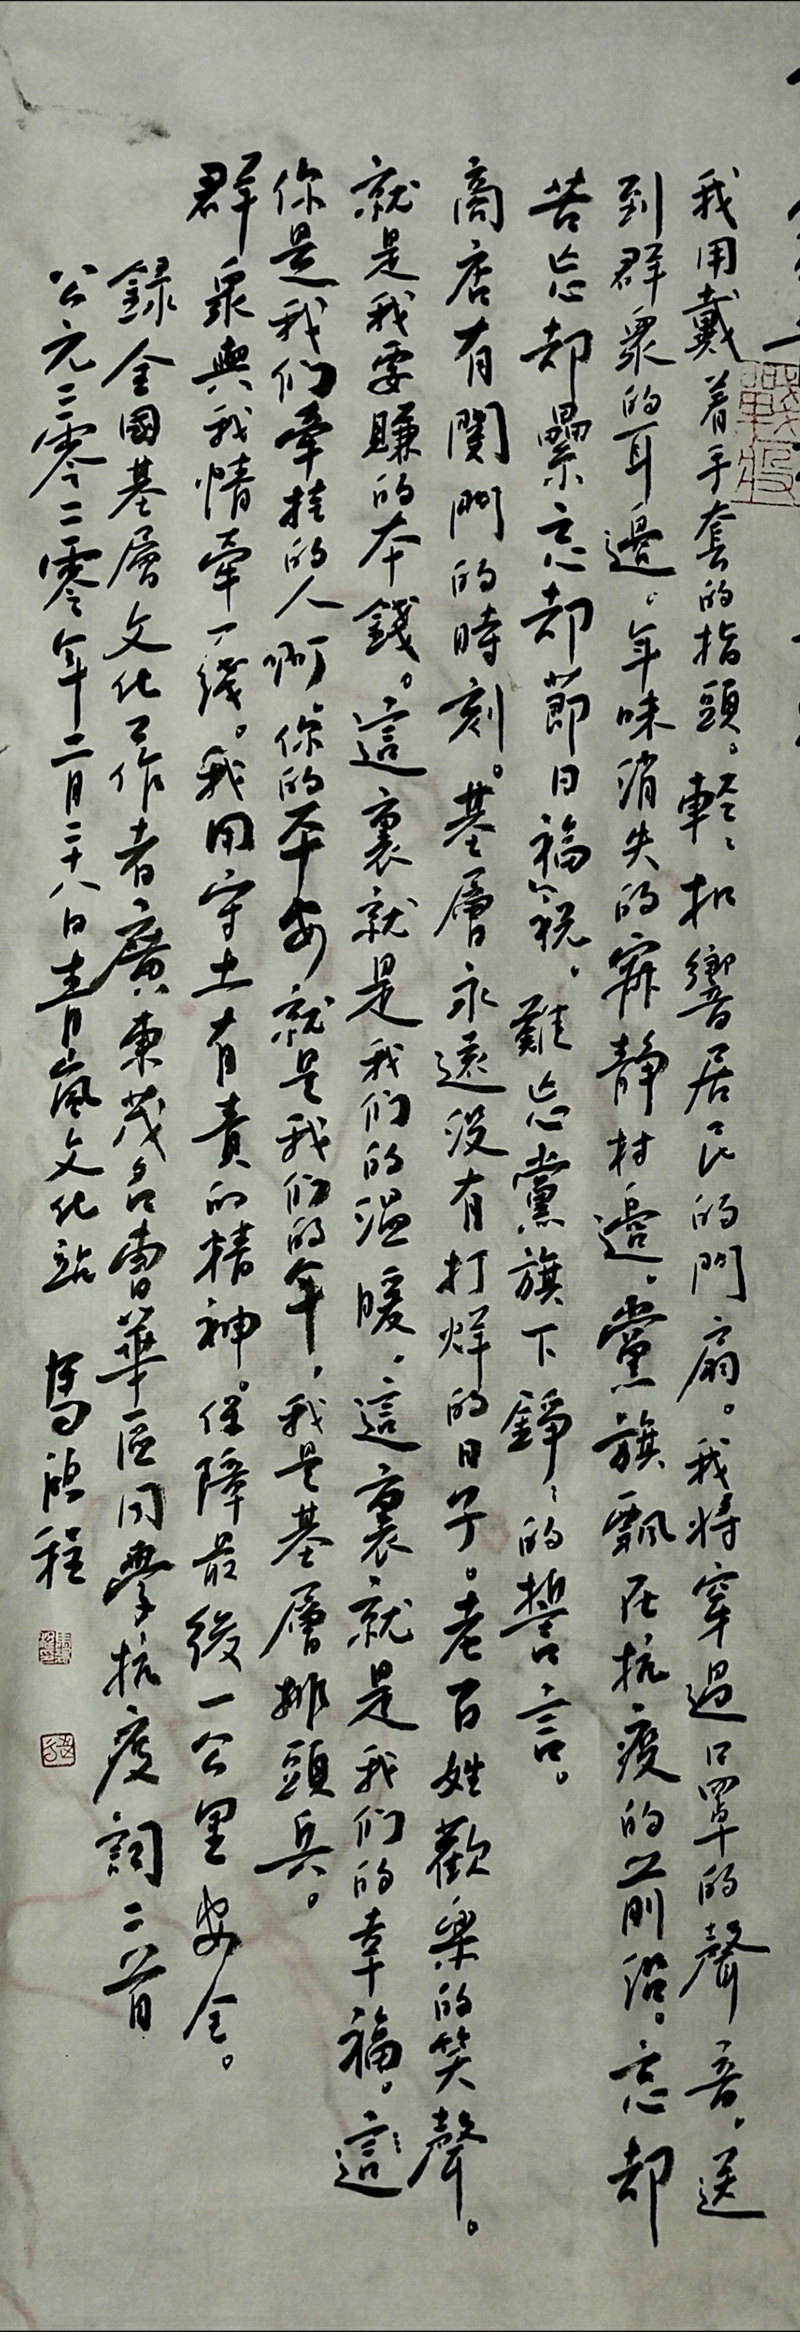 我用戴着手套的指頭。輕、扣響居民的門扇。我將穿過口罩的聲音，送
到群眾的耳邊。年味消失的寂靜村邊，黨旗飄在抗疫的前沿。忘却
苦忘却累忘却節日福祝，難忘黨旗下錚、的誓言。
商店有関門的時刻。基層永遠没有打烊的日子。老百姓歡樂的笑聲。
就是我要賺的本錢。這裏就是我们的温暖，這裏就是我们的幸福。這
你是我们牽挂的人啊你的平安就是我们的年，我是基層排頭兵。
群眾與我情牽一綫。我用守土有責的精神。保障最後一公里安全。
録全國基層文化工作者廣東茂名曹華區同學抗疫詞二首
公元二零二零年二月二十八日青嵐文化站 馬啟程